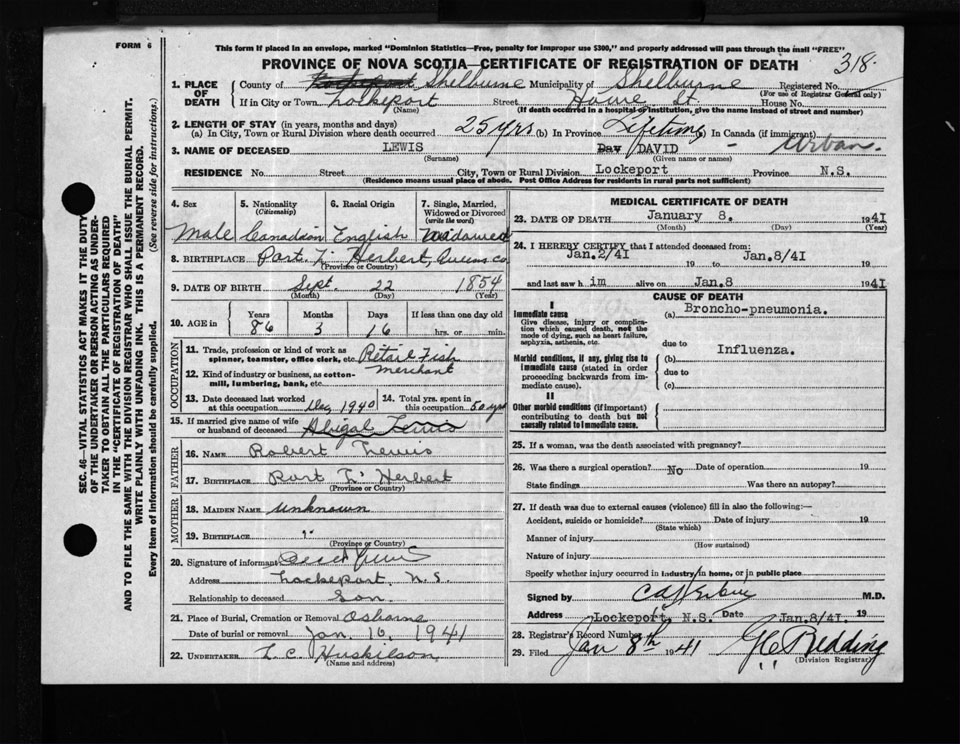 FORM 6
This form if placed in an envelope, marked "Dominion Statistics—Free, penalty for improper use $300," and properly addressed will pass through the mail "FREE"
PROVINCE OF NOVA SCOTIA—CERTIFICATE OF REGISTRATION OF DEATH
318.
1. PLACE OF DEATH
County of Shelburne Municipality of Shelburne Registered No.
(For use of Registrar General only)
If in City or Town Lockeport Street St. House No.
(Name) (If death occurred in a hospital or institution, give name instead of street and number)
2. LENGTH OF STAY (in years, months and days)
(a) In City, Town or Rural Division where death occurred 25 yrs (b) In Province Lifetime (c) In Canada (if immigrant)
Urban.
3. NAME OF DECEASED LEWIS Dav DAVID -
(Surname) (Given name or names)
RESIDENCE No. Street City, Town or Rural Division Lockeport Province N.S.
(Residence means usual place of abode. Post Office Address for residents in rural parts not sufficient)
4. Sex 5. Nationality (Citizenship) 6. Racial Origin 7. Single, Married, Widowed or Divorced (write the word)
Male Canadian English Widowed
8. BIRTHPLACE Port L' Herbert, Queens Co.
(Province or Country)
9. DATE OF BIRTH Sept. 22 1854
(Month) (Day) (Year)
10. AGE in Years Months Days If less than one day old
86 3 16 hrs. or min.
OCCUPATION
11. Trade, profession or kind of work as spinner, teamster, office clerk, etc. Retail Fish
12. Kind of industry or business, as cotton-mill, lumbering, bank, etc. Merchant
13. Date deceased last worked at this occupation Dec, 1940 14. Total yrs. spent in this occupation 50 yrs
15. If married give name of wife or husband of deceased Abigal Lewis
FATHER
16. NAME Robert Lewis
17. BIRTHPLACE Port L' Herbert
(Province or Country)
MOTHER
18. MAIDEN NAME Unknown
19. BIRTHPLACE "
(Province or Country)
20. Signature of informant Lewis
Address Lockeport, N.S.
Relationship to deceased Son.
21. Place of Burial, Cremation or Removal Osborne
Date of burial or removal Jan. 10, 1941
22. UNDERTAKER L. C. Huskilson
(Name and address)
MEDICAL CERTIFICATE OF DEATH
23. DATE OF DEATH January 8. 1941
(Month) (Day) (Year)
24. I HEREBY CERTIFY that I attended deceased from:
Jan.2/41 19 to Jan.8/41 19
and last saw h im alive on Jan.8 1941
CAUSE OF DEATH
I
Immediate cause (a) Broncho-pneumonia.
Give disease, injury or complication which caused death, not the mode of dying, such as heart failure, asphyxia, asthenia, etc.
due to
Morbid conditions, if any, giving rise to immediate cause (stated in order proceeding backwards from immediate cause).
(b) Influenza.
due to
(c)
II
Other morbid conditions (if important) contributing to death but not causally related to immediate cause.
25. If a woman, was the death associated with pregnancy?
26. Was there a surgical operation? No Date of operation 19
State findings Was there an autopsy?
27. If death was due to external causes (violence) fill in also the following:—
Accident, suicide or homicide? Date of injury 19
(State which)
Manner of injury
(How sustained)
Nature of injury
Specify whether injury occurred in industry, in home, or in public place
Signed by M.D.
Address Lockeport, N.S. Date Jan.8/41. 19
28. Registrar's Record Number
29. Filed Jan 8th 1941 Redding
(Division Registrar)
SEC. 46—VITAL STATISTICS ACT MAKES IT THE DUTY
OF THE UNDERTAKER OR PERSON ACTING AS UNDER-
TAKER TO OBTAIN ALL THE PARTICULARS REQUIRED
IN THE "CERTIFICATE OF REGISTRATION OF DEATH"
AND TO FILE THE SAME WITH THE DIVISION REGISTRAR WHO SHALL ISSUE THE BURIAL PERMIT.
WRITE PLAINLY WITH UNFADING INK. THIS IS A PERMANENT RECORD.
Every item of information should be carefully supplied. (See reverse side for instructions.)